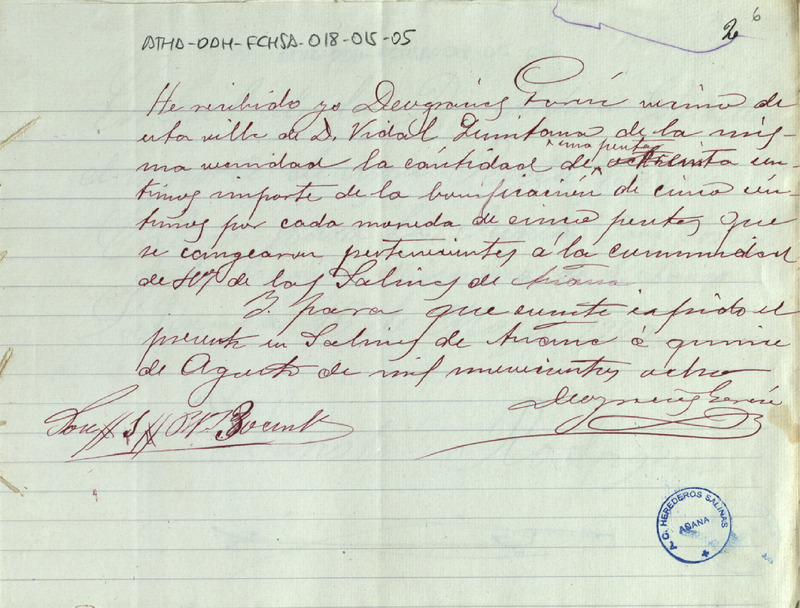 ATHA-DAH-FCHSA-018-015-05
2
6
He recibido yo Deogracias García vecino de
esta villa de D. Vidal Quintana de la mis-
ma vecindad la cantidad de una peseta treinta cen-
timos importe de la bonificación de cinco cén-
timos por cada moneda de cinco pesetas que
se cangearon pertenecientes á la comunidad
de de las Salinas de Añana
Y para que conste expido el
presente en Salinas de Añana á quince
de Agosto de mil novecientos ocho
Deogracias García
Son 1 30 cent
A. C. HEREDEROS SALINAS
AÑANA